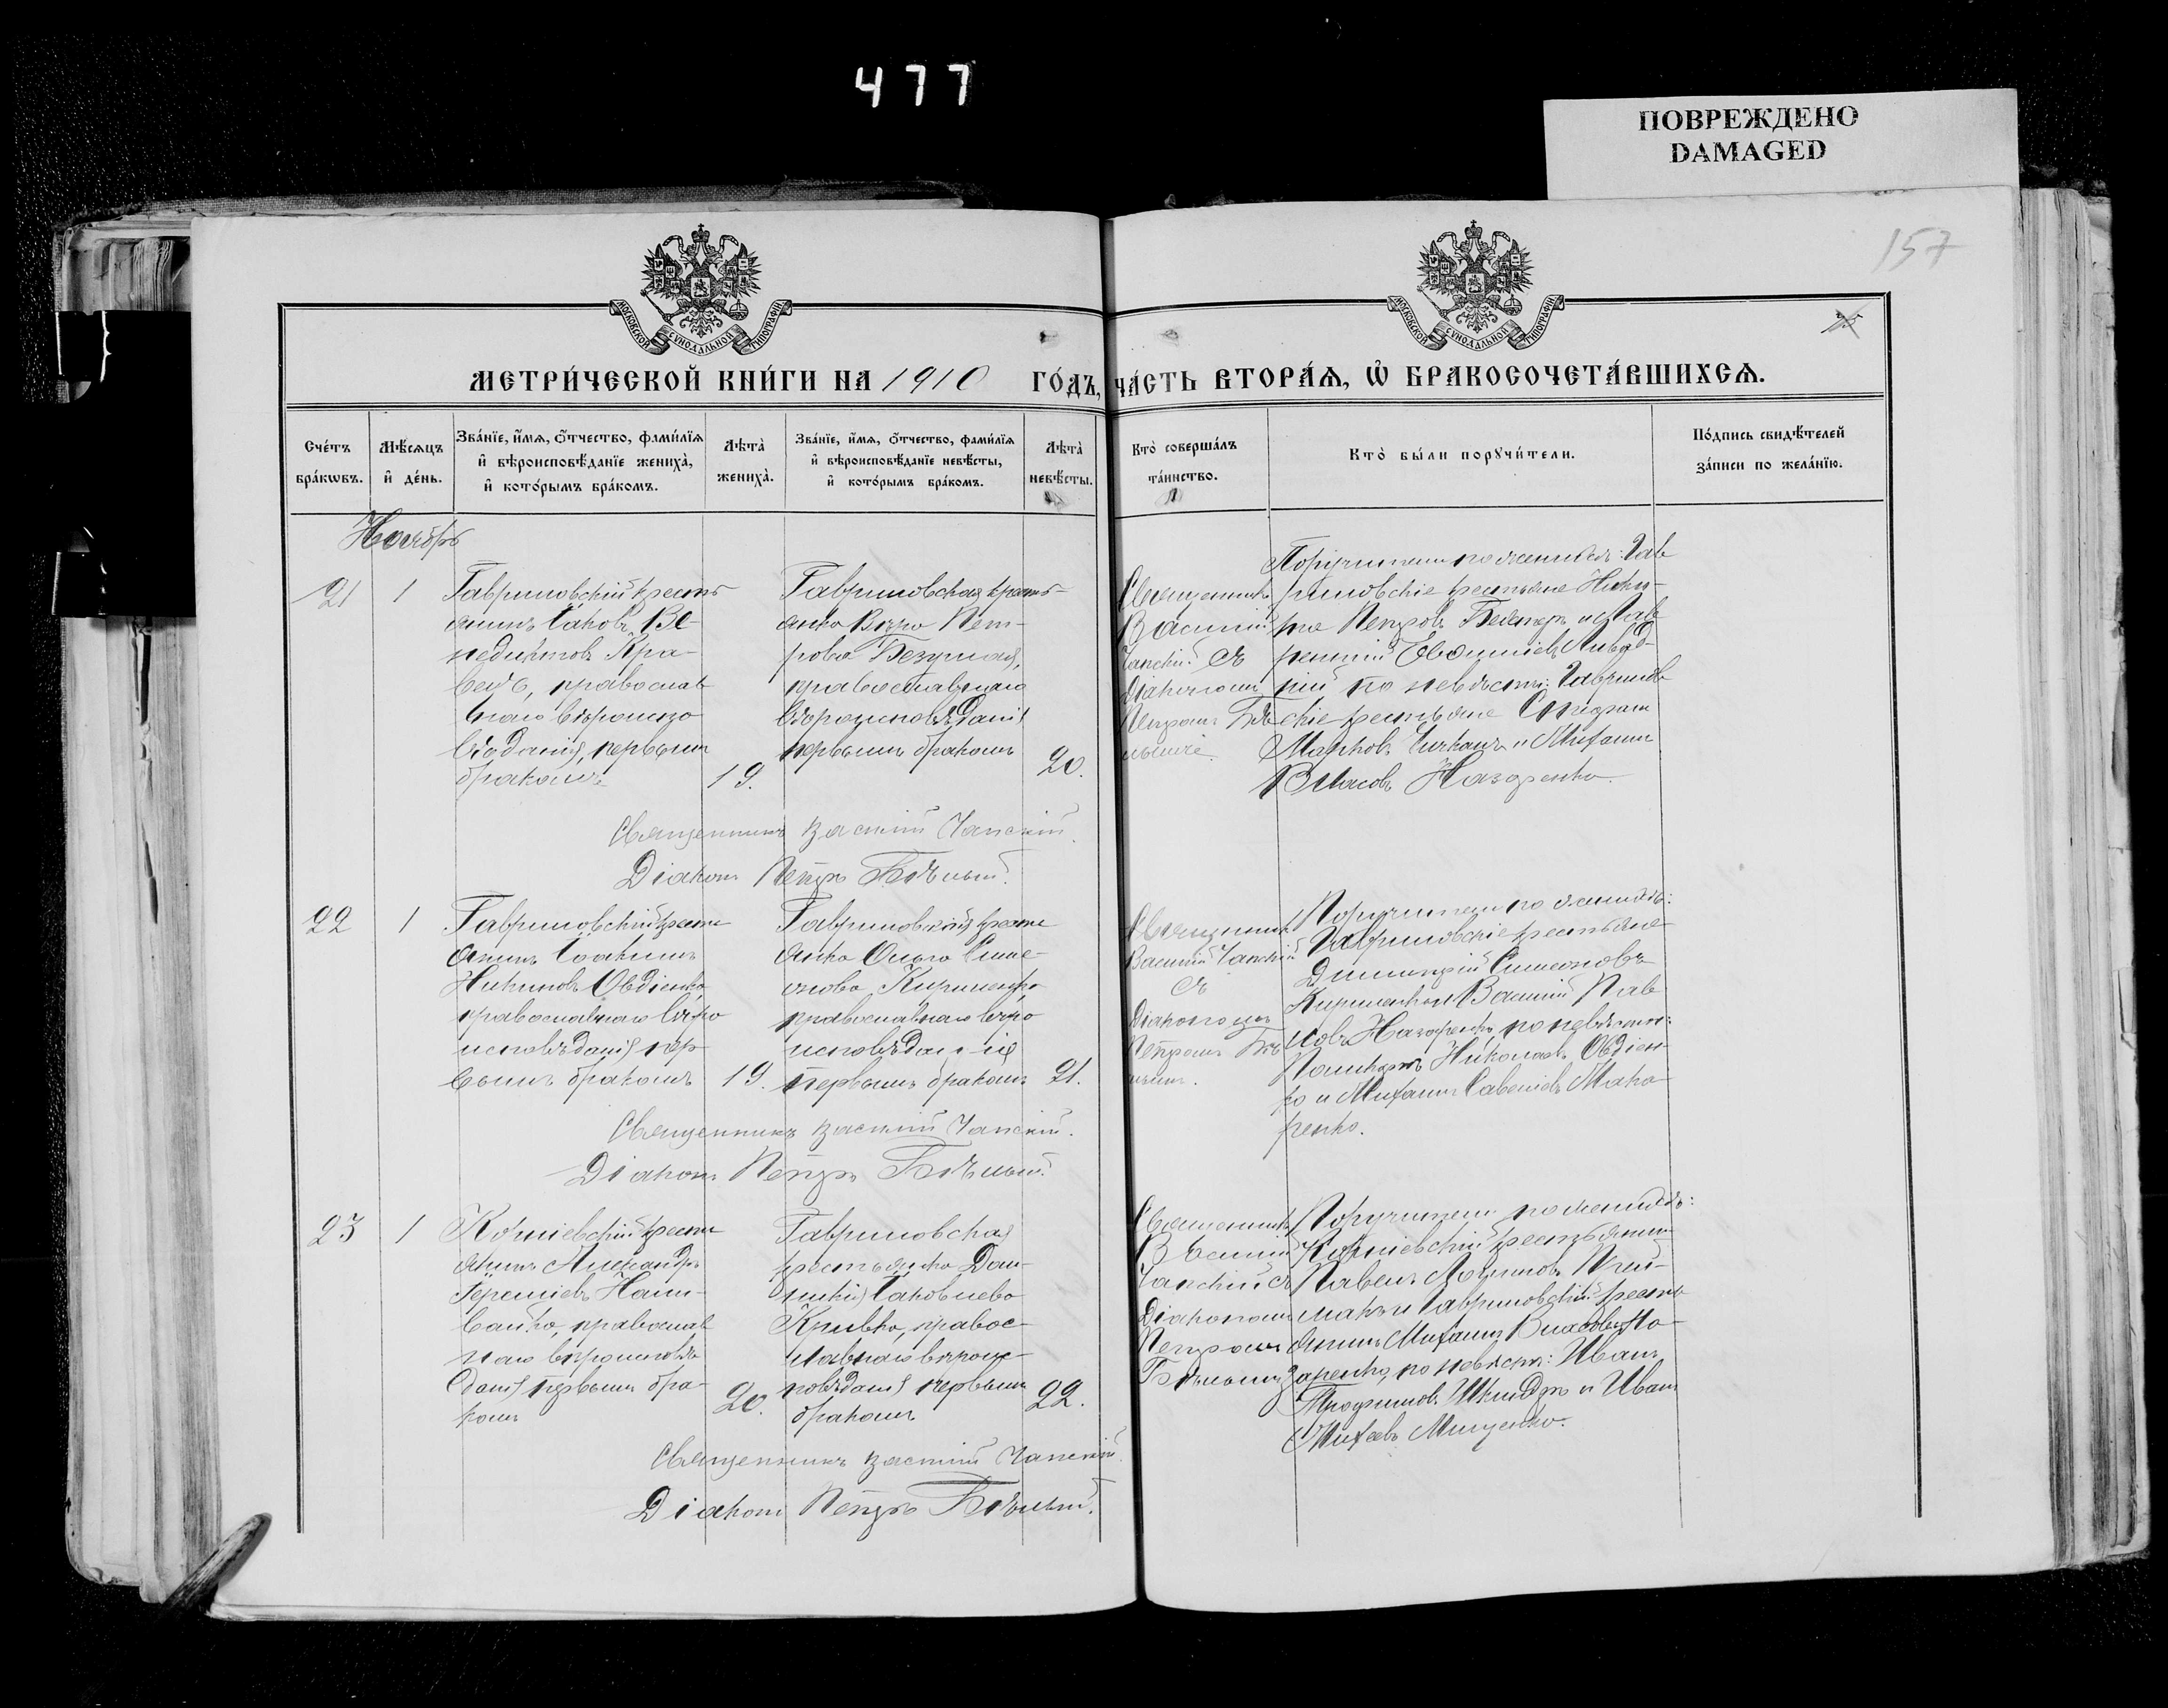 477
ПОВРЕЖДЕНО
DAMAGED
157
МОСКОВСКОЙ СѴНОДАЛЬНОЙ ТИПОГРАФІИ
МОСКОВСКОЙ СѴНОДАЛЬНОЙ ТИПОГРАФІИ
МЕТРИ́ЧЕСКОЙ КНИ́ГИ НА 1910 ГО́ДЪ, ЧА́СТЬ ВТОРА́Ѧ, Ѡ҆ БРАКОСОЧЕТА́ВШИХСѦ.
Сче́тъ
бра́кѡвъ.
Мѣ́сѧцъ
и҆ де́нь.
Зва́нїе, и҆́мѧ, ѻ҆́тчество, фами́лїѧ
и҆ вѣроисповѣ́данїе жениха̀,
и҆ кото́рымъ бра́комъ.
Лѣта̀
жениха̀.
Зва́нїе, и҆́мѧ, ѻ҆́тчество, фами́лїѧ
и҆ вѣроисповѣ́данїе невѣ́сты,
и҆ кото́рымъ бра́комъ.
Лѣта̀
невѣ́сты.
Кто̀ соверша́лъ
та́инство.
Кто̀ бы́ли порꙋчи́тели.
По́дпись свидѣ́телей
за́писи по жела́нїю.
Ноябрь
21
1
Гавриловскій кресть
янинъ Іаковъ Ве-
недиктовъ Кра-
православ
наго вѣроиспо
вѣданія, первымъ
бракомъ
19.
Гавриловская кресть-
янка Вѣра Пет-
рова Безуглая,
православнаго
вѣроисповѣданія
первымъ бракомъ
20.
Священникъ
Василій
Чапскій съ
Діакономъ
Петромъ Бѣ
лымъ.
Поручители по женихѣ: Гав
риловскіе крестьяне Ники-
та Петровъ и Лав
рентій
по невѣстѣ: Гаврилов
скіе крестьяне
Марковъ и Михаилъ
Власовъ Назаренко.
Священникъ Василій Чапскій.
Діаконъ Петръ Бѣлый.
22
1
Гавриловскій крестьян
янинъ Іоакимъ
Никитовъ Овдіенко,
православнаго вѣро
исповѣданія пер
вымъ бракомъ
19.
Гавриловская кресть
янка Ольга Симе-
онова Кириленко,
православнаго вѣро
исповѣданія
первымъ бракомъ
21.
Священникъ
Василій Чапскій
съ
Діакономъ
Петромъ Бѣ
лымъ.
Поручители по женихѣ:
Гавриловскіе крестьяне
Димитрій Симеоновъ
Кириленко и Василій Пав
ловъ Назаренко, по невѣстѣ:
Николаевъ Овдіен-
ко и Михаилъ Савеліевъ Мака
ренко.
Священникъ Василій Чапскій.
Діаконъ Петръ Бѣлый.
23
1
крестья
янинъ Александръ
Нали-
вайко, православ
наго вѣроисповѣ
данія первымъ бра-
комъ
20.
Гавриловская
крестьянка Дом-
никія Іаковлева
Кривко, правос-
лавнаго вѣроис-
повѣданія первымъ
бракомъ
22.
Священникъ
Василій
Чапскій съ
Діакономъ
Петромъ
Бѣлымъ
Поручители по женихѣ:
крестьянинъ
Павелъ
и Гавриловскій кресть
янинъ Михаилъ Власовъ На-
заренко, по невѣстѣ: Иванъ
Трофимовъ и Иванъ
Михеевъ Мищенко.
Священникъ Василій Чапскій.
Діаконъ Петръ Бѣлый.